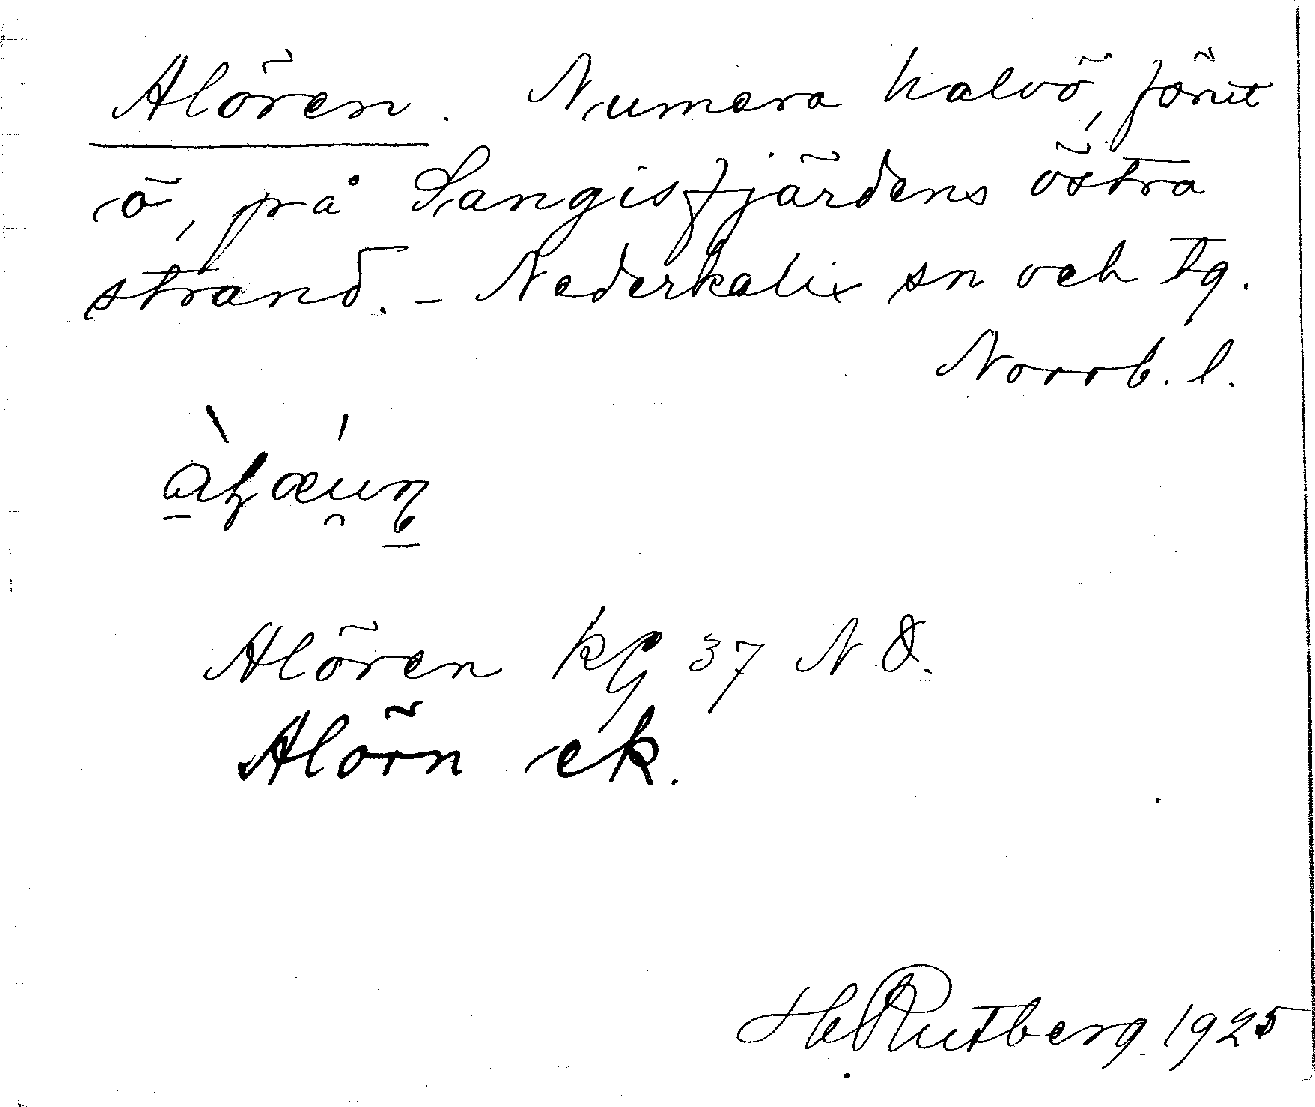 Alören. Numera halvö, förut
ö, på Sangisfjärdens östra
strand. - Nederkalix sn och tg.
Norrb. l.
Alören kg 37 N.O.
Alörn ek.
H Rutberg 1925